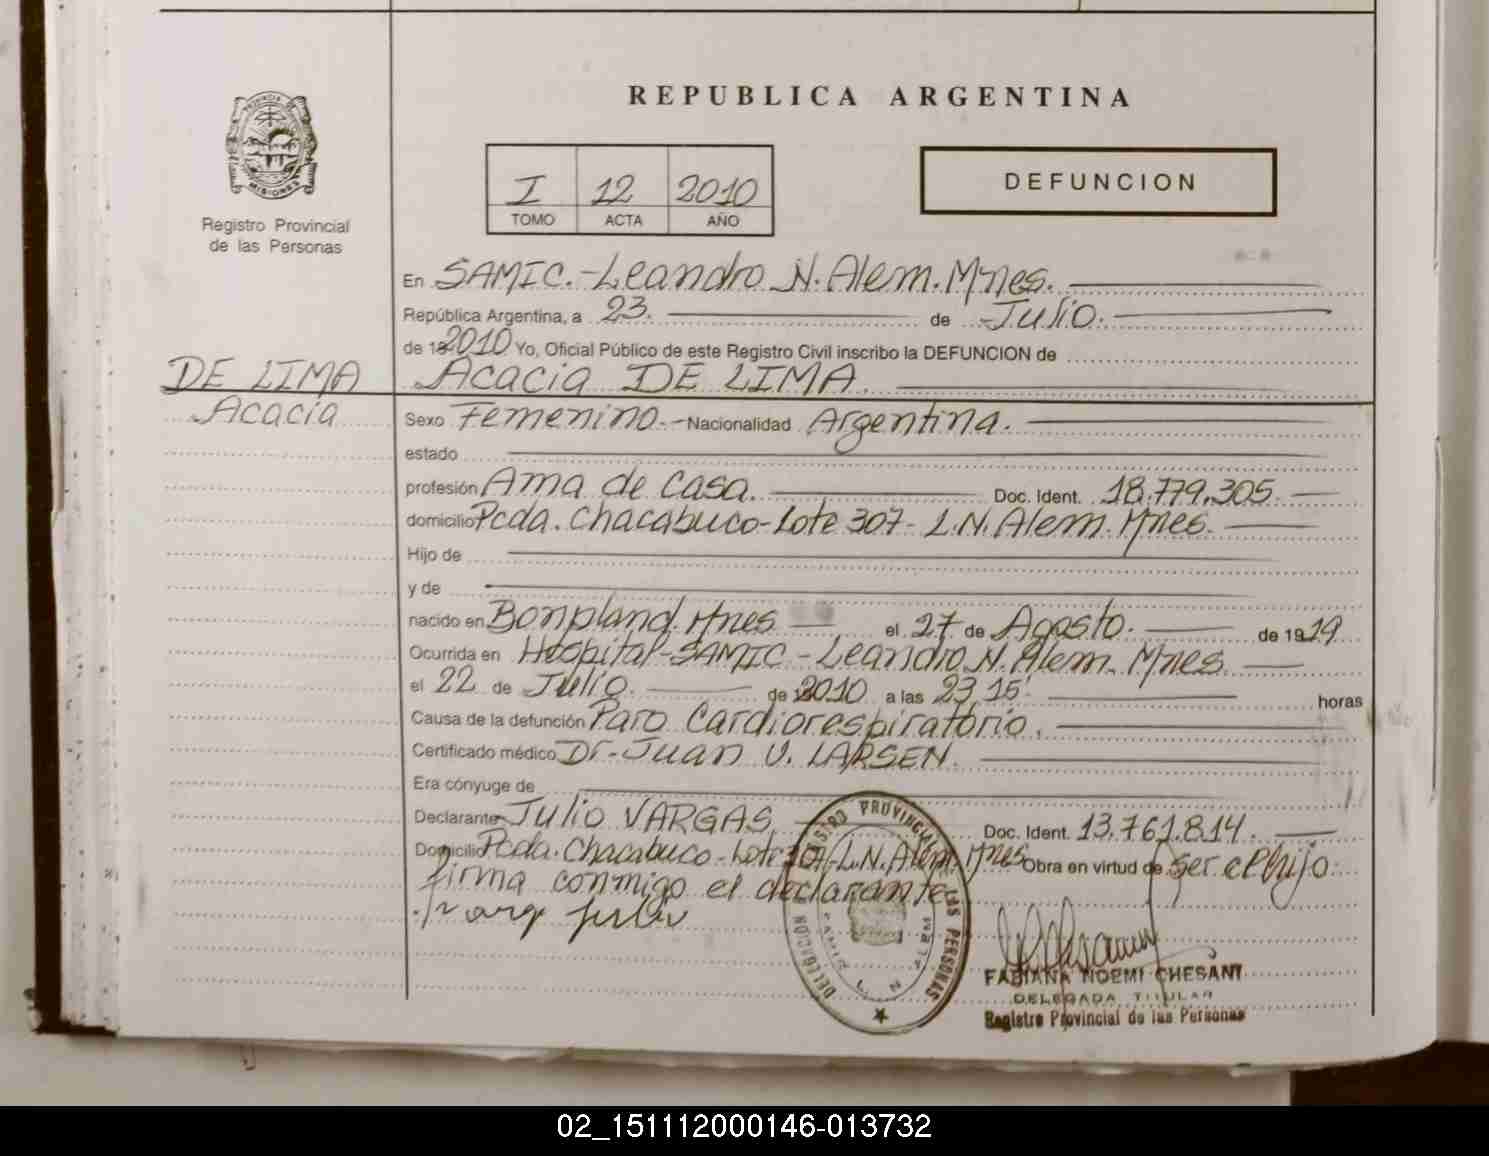 REPUBLICA ARGENTINA
PROVINCIA DE MISIONES
Registro Provincial
de las Personas
I 12 2010
TOMO ACTA AÑO
DEFUNCION
En SAMIC.-Leandro N. Alem. Mnes.
República Argentina, a 23. de Julio.
de 192010 Yo, Oficial Público de este Registro Civil inscribo la DEFUNCION de
DE LIMA
Acacia
Acacia DE LIMA.
Sexo Femenino.- Nacionalidad Argentina.
estado
profesión Ama de Casa. Doc. Ident. 18.779.305.
domicilio Pcda. Chacabuco-Lote 307- L.N. Alem. Mnes.
Hijo de
y de
nacido en Bonpland. Mnes el 27 de Agosto. de 1919
Ocurrida en Hospital-SAMIC-Leandro N. Alem. Mnes.
el 22 de Julio. de 2010 a las 23 15 horas
Causa de la defunción Paro Cardiorespiratorio.
Certificado médico Dr.-Juan V. LARSEN.
Era cónyuge de
Declarante Julio VARGAS Doc. Ident. 13.761.814.
Domicilio Pcda. Chacabuco-Lote 307-L.N. Alem. Mnes Obra en virtud de ser el hijo.
firma conmigo el declarante
DELEGACION REGISTRO PROVINCIAL LAS PERSONAS
FABIANA NOEMI CHESANI
DELEGADA TITULAR
Registro Provincial de las Personas
02_151112000146-013732